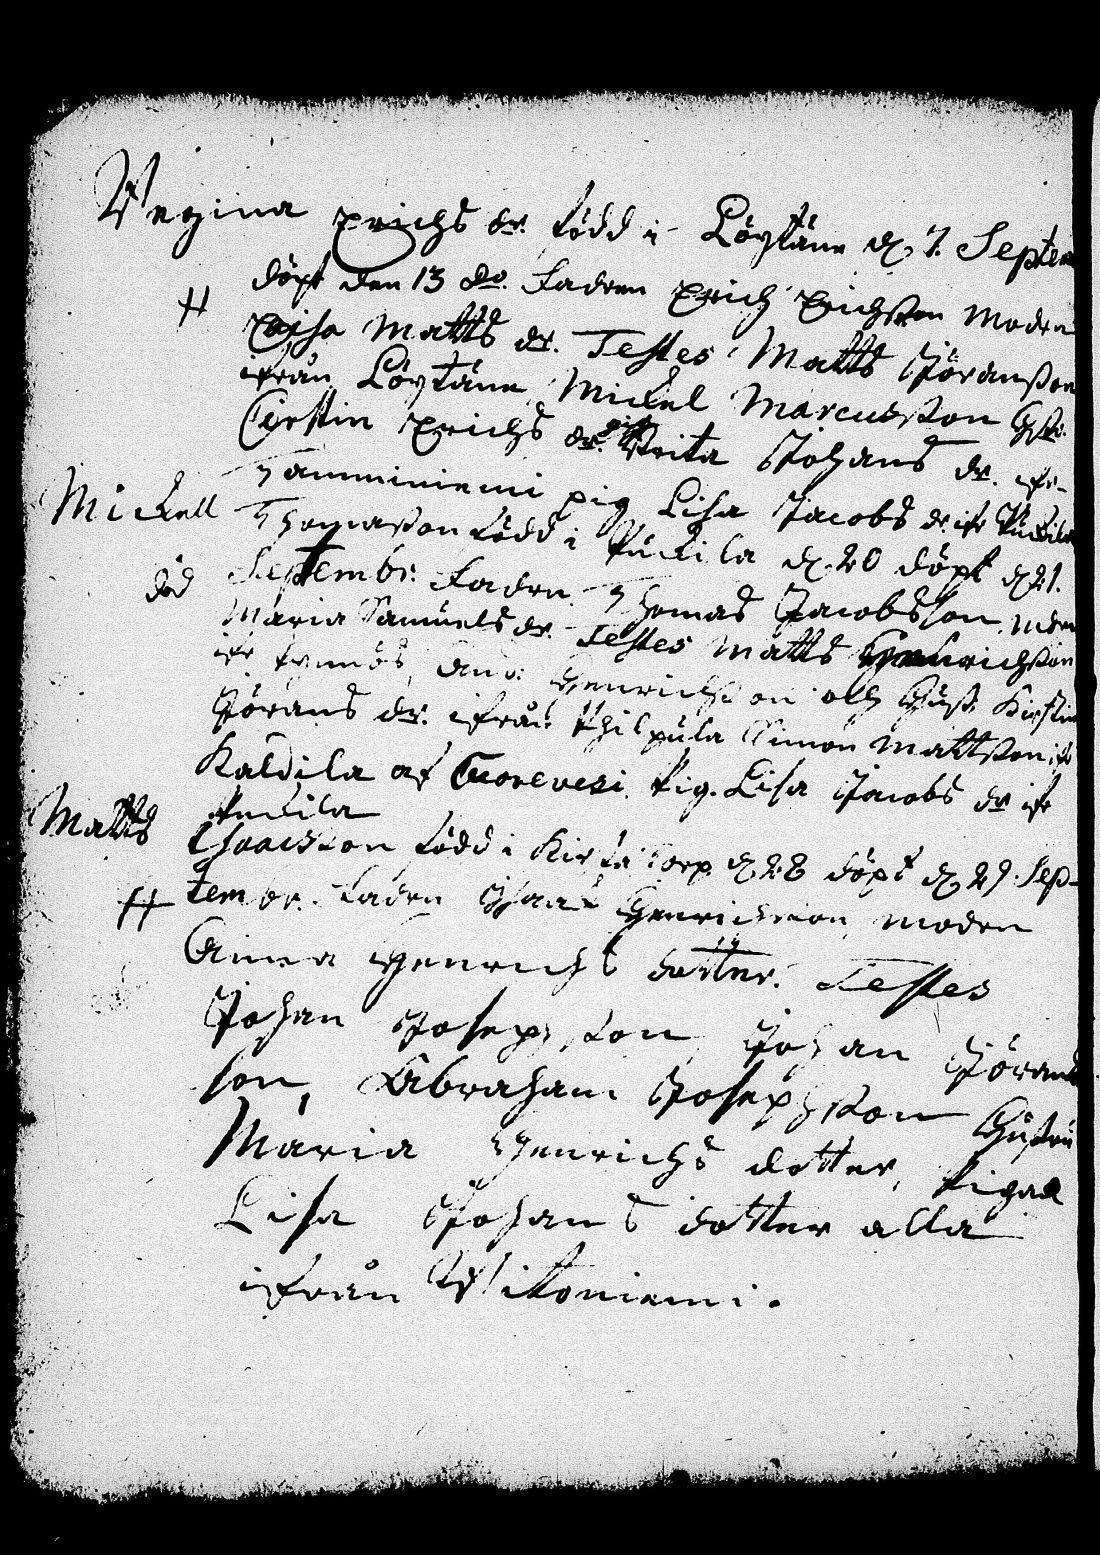 Regina Erichs dr. född i Löytäne d 7. Septem
döpt den 13 do. Fadren Erich Erichsson Modren
# Caisa Matts dr. Testes Matts Jöransson
ifrån Löytäne, Mickel Marcusson Hust.
Cirstin Erichs dr. pig Brita Johans dr. ifr.
Tamminiemi pig Lisa Jacobs dr. ifr Puckila
Mickell Thomasson född i Puckila d 20 döpt d 21.
död Septembr. Fadren Thomas Jacobsson, modren
Maria Samuels dr. Testes Matts Henrichsson
ifr And: Henrichsson och Hust. Kirstin
Jörans dr. ifrån Philpula Simon Mattsson ifr
Kaldila af Cuorevesi. Pig. Lisa Jacobs dr ifr
Puckila
Matts Isaacsson född i Kirckatorp d 28 döpt d 29. Sep-
# tembr. Fadren Isaac Henrichsson, modren
Anna Henrichs dotter. Testes
Johan Josephsson, Johan Jörans
son, Abraham Josephsson Hustru
Maria Henrichs dotter, Pigan
Lisa Johans dotter alla
ifrån Wikoniemi.